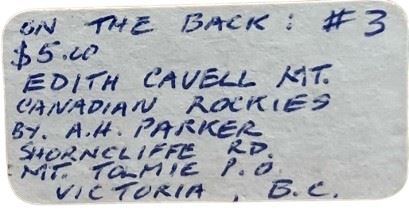 ON THE BACK: #3
$5.00
EDITH CAVELL MT.
CANADIAN ROCKIES
BY. A.H. PARKER
SHORNCLIFFE RD.
MT. TOLMIE P.O.
VICTORIA, B.C.